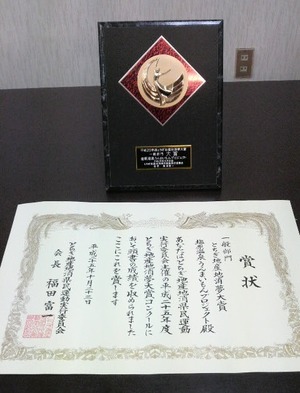 賞状
一般部門
とちぎ地産地消夢大賞
塩原温泉うんまいもんプロジェクト殿
あなたはとちぎ地産地消県民運動
実行委員会主催の平成二十五年度
とちぎ地産地消夢大賞コンクールに
おいて頭書の成績を収められました
ここにこれを賞します
平成二十五年十月二十三日
とちぎ地産地消県民運動実行委員会
会長 福田富一
大賞